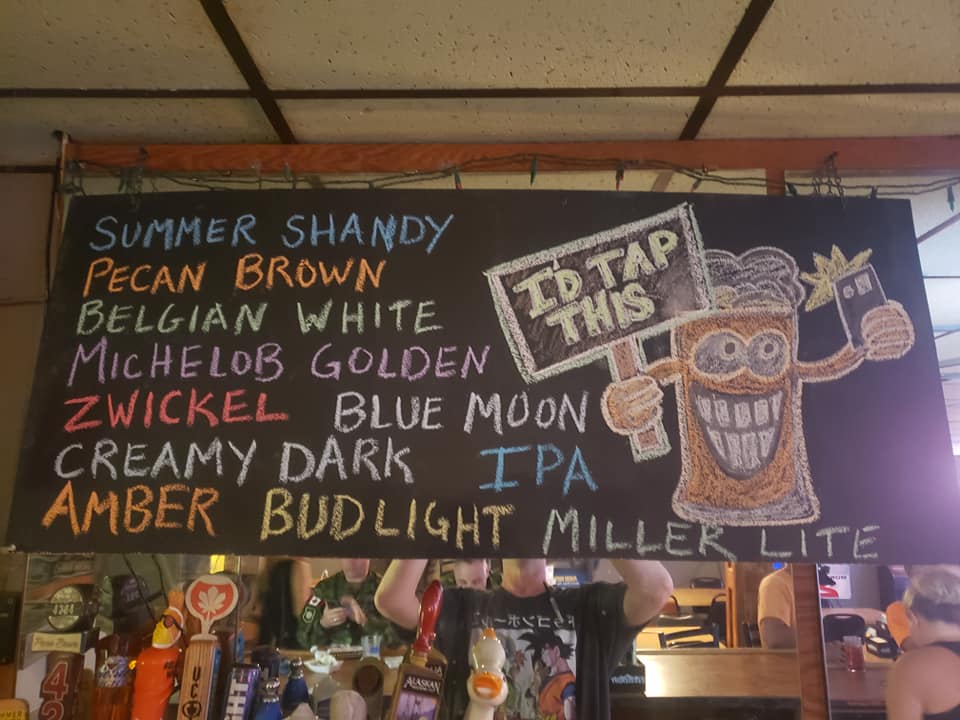 SUMMER SHANDY
PECAN BROWN
BELGIAN WHITE
MICHELOB GOLDEN
ZWICKEL BLUE MOON
CREAMY DARK IPA
AMBER BUD LIGHT MILLER LITE
I'D TAP
THIS
ALASKAN
ドラゴンボール